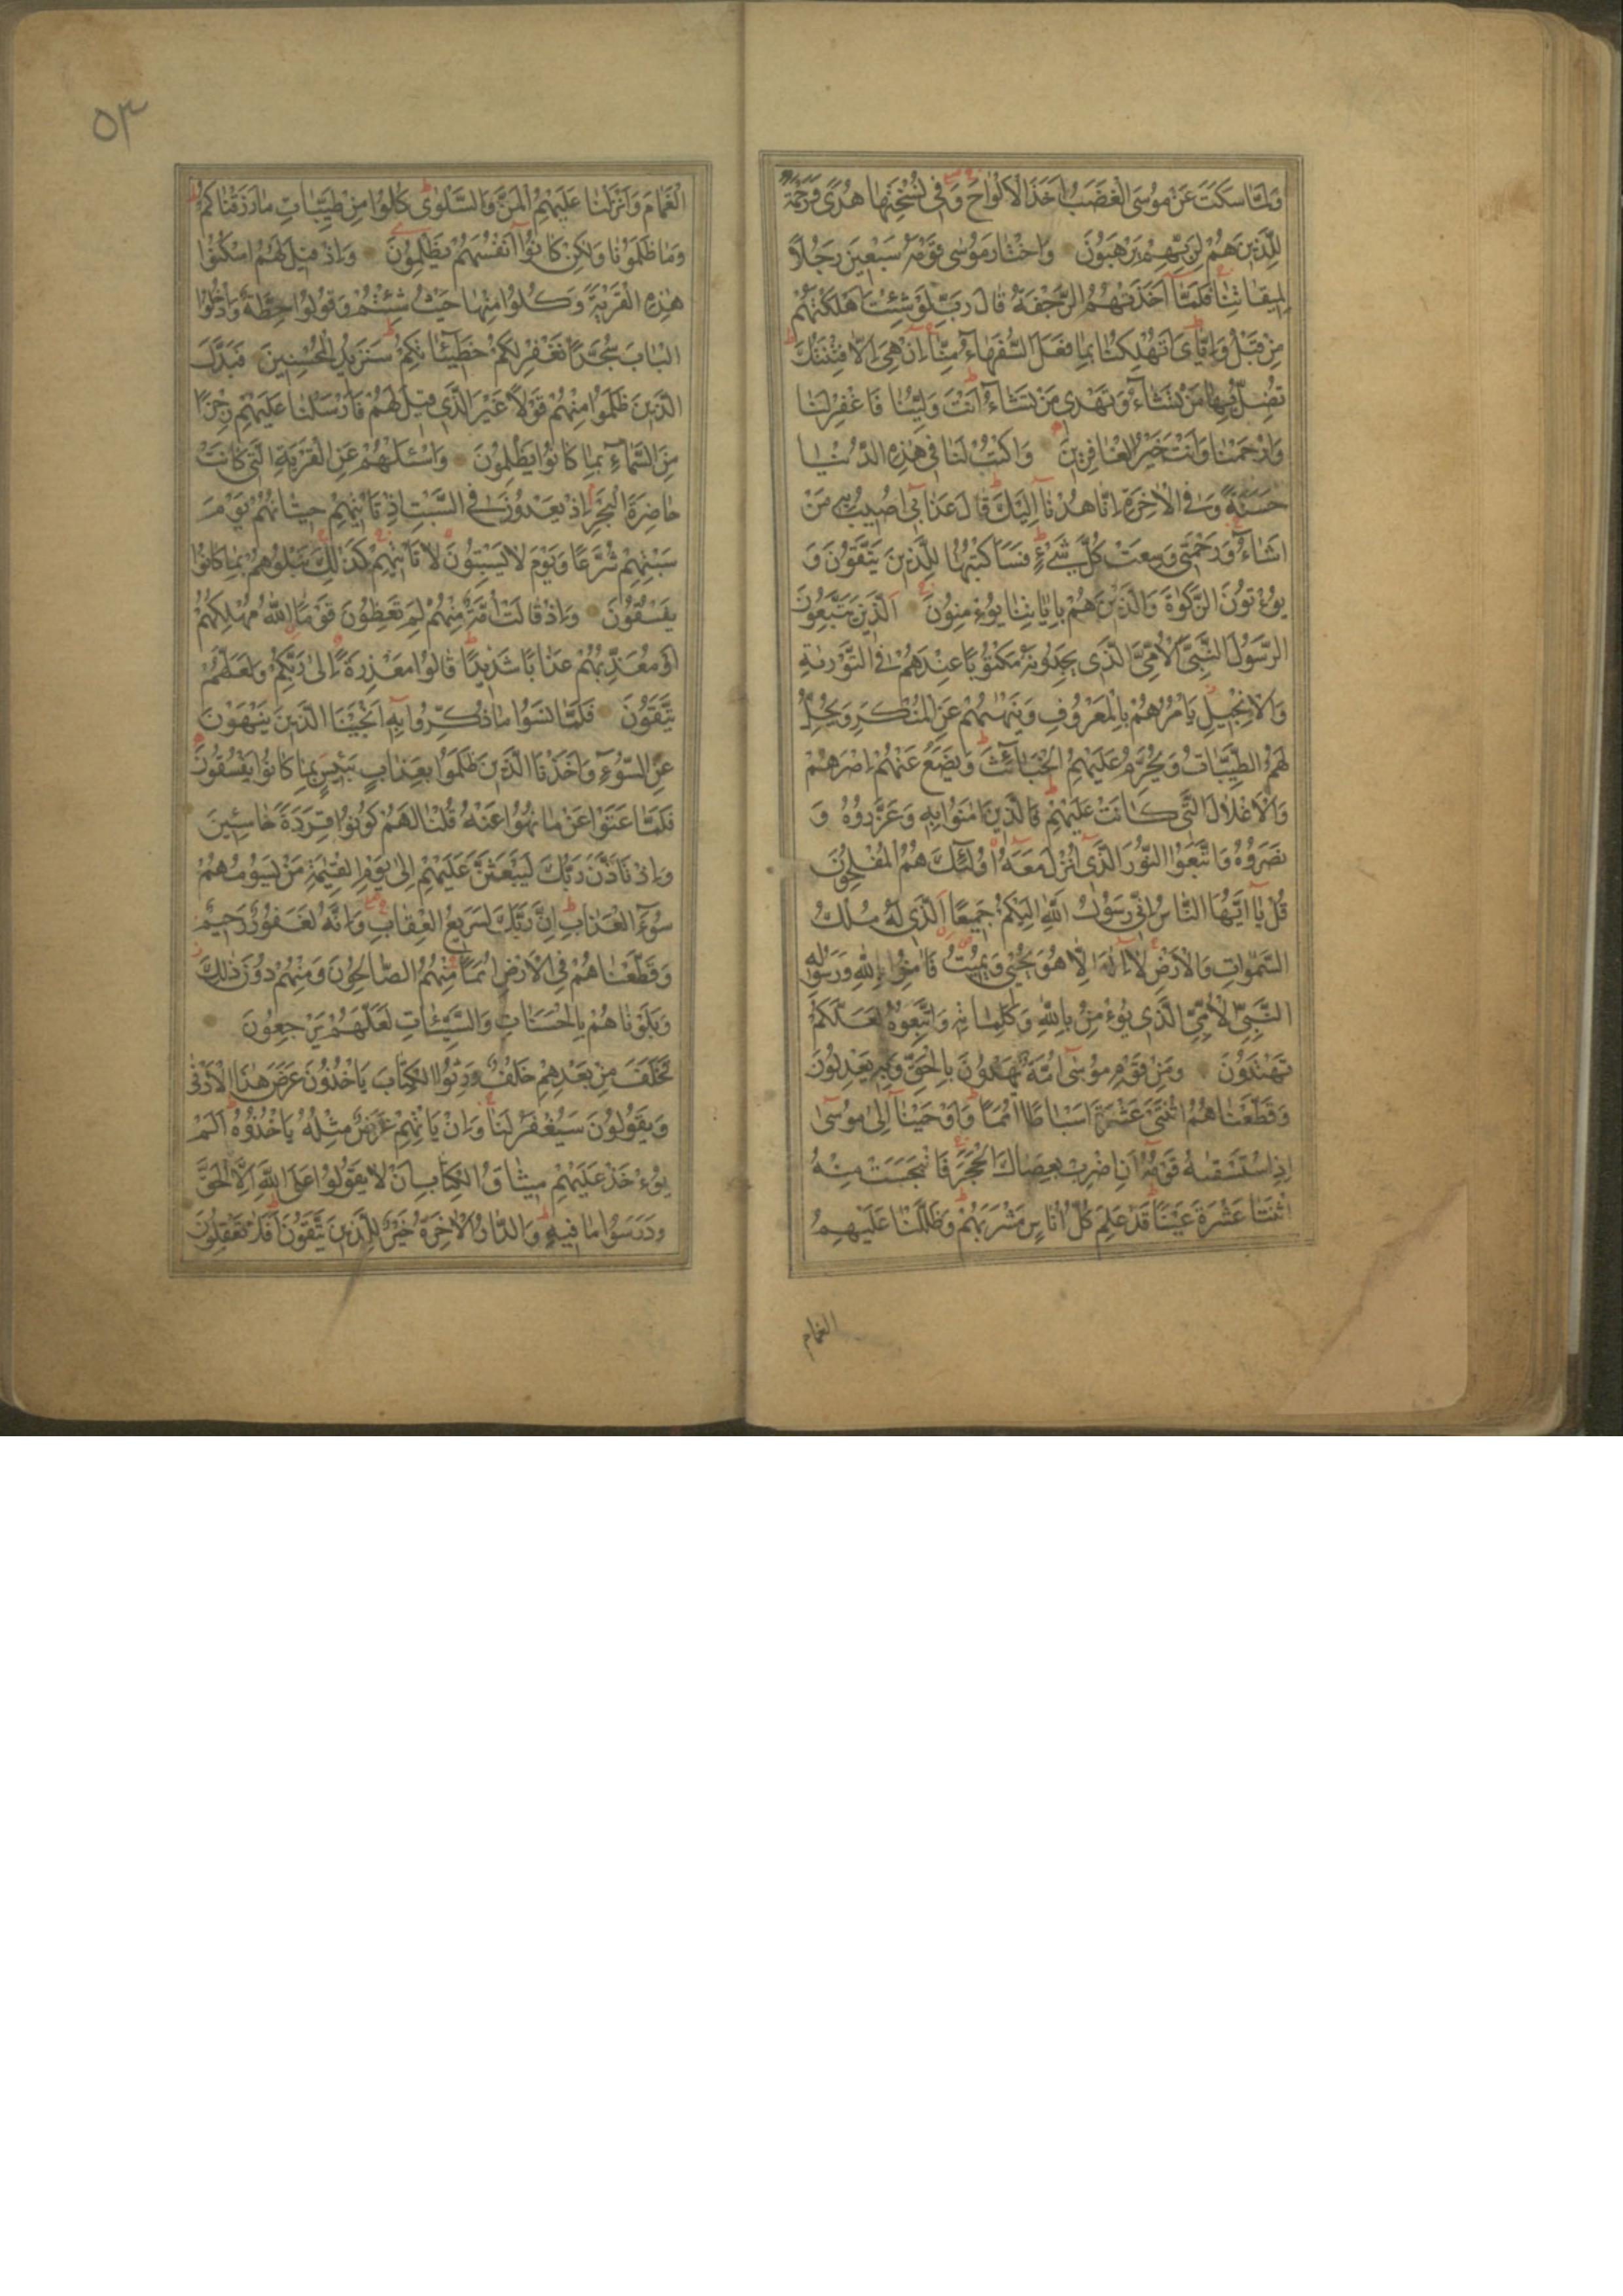 وَلَمَّا سَكَتَ عَنْ مُوسَى الْغَضَبُ اَخَذَ الْاَلْوَاحَ وَفِى نُسْخَتِهَا هُدًى وَرَحْمَةٌ
لِلَّذِينَ هُمْ لِرَبِّهِمْ يَرْهَبُونَ وَاخْتَارَ مُوسٰى قَوْمَهُ سَبْعِينَ رَجُلاً
لِمِيقَاتِنَا فَلَمَّا اَخَذَتْهُمُ الرَّجْفَةُ قَالَ رَبِّ لَوْ شِئْتَ اَهْلَكْتَهُمْ
مِنْ قَبْلُ وَاِيَّاىَ اَتُهْلِكُنَا بِمَا فَعَلَ السُّفَهَاءُ مِنَّا اِنْ هِىَ اِلاَّ فِتْنَتُكَ
تُضِلُّ بِهَا مَنْ تَشَاءُ وَتَهْدِى مَنْ تَشَاءُ اَنْتَ وَلِيُّنَا فَاغْفِرْ لَنَا
وَارْحَمْنَا وَاَنْتَ خَيْرُ الْغَافِرِينَ وَاكْتُبْ لَنَا فِى هٰذِهِ الدُّنْيَا
حَسَنَةً وَفِى الْاٰخِرَةِ اِنَّا هُدْنَا اِلَيْكَ قَالَ عَذَابِى اُصِيبُ بِهِ مَنْ
اَشَاءُ وَرَحْمَتِى وَسِعَتْ كُلَّ شَىْءٍ فَسَاَكْتُبُهَا لِلَّذِينَ يَتَّقُونَ وَ
يُؤْتُونَ الزَّكٰوةَ وَالَّذِينَ هُمْ بِاٰيَاتِنَا يُؤْمِنُونَ اَلَّذِينَ يَتَّبِعُونَ
الرَّسُولَ النَّبِىَّ الْاُمِّىَّ الَّذِى يَجِدُونَهُ مَكْتُوبًا عِنْدَهُمْ فِى التَّوْرٰيةِ
وَالْاِنْجِيلِ يَاْمُرُهُمْ بِالْمَعْرُوفِ وَيَنْهٰيهُمْ عَنِ الْمُنْكَرِ وَيُحِلُّ
لَهُمُ الطَّيِّبَاتِ وَيُحَرِّمُ عَلَيْهِمُ الْخَبَائِثَ وَيَضَعُ عَنْهُمْ اِصْرَهُمْ
وَالْاَغْلَالَ الَّتِى كَانَتْ عَلَيْهِمْ فَالَّذِينَ اٰمَنُوا بِهِ وَعَزَّرُوهُ وَ
نَصَرُوهُ وَاتَّبَعُوا النُّورَ الَّذِى اُنْزِلَ مَعَهُ اُولٰئِكَ هُمُ الْمُفْلِحُونَ
قُلْ يَا اَيُّهَا النَّاسُ اِنِّى رَسُولُ اللّٰهِ اِلَيْكُمْ جَمِيعًا الَّذِى لَهُ مُلْكُ
السَّمٰوَاتِ وَالْاَرْضِ لَا اِلٰهَ اِلَّا هُوَ يُحْيِى وَيُمِيتُ فَاٰمِنُوا بِاللّٰهِ وَرَسُولِهِ
النَّبِىِّ الْاُمِّىِّ الَّذِى يُؤْمِنُ بِاللّٰهِ وَكَلِمَاتِهِ وَاتَّبِعُوهُ لَعَلَّكُمْ
تَهْتَدُونَ وَمِنْ قَوْمِ مُوسٰى اُمَّةٌ يَهْدُونَ بِالْحَقِّ وَبِهِ يَعْدِلُونَ
وَقَطَّعْنَاهُمُ اثْنَتَىْ عَشْرَةَ اَسْبَاطًا اُمَمًا وَاَوْحَيْنَا اِلٰى مُوسٰى
اِذِ اسْتَسْقٰيهُ قَوْمُهُ اَنِ اضْرِبْ بِعَصَاكَ الْحَجَرَ فَانْبَجَسَتْ مِنْهُ
اثْنَتَا عَشْرَةَ عَيْنًا قَدْ عَلِمَ كُلُّ اُنَاسٍ مَشْرَبَهُمْ وَظَلَّلْنَا عَلَيْهِمُ
الغمام
٥٣
الْغَمَامَ وَاَنْزَلْنَا عَلَيْهِمُ الْمَنَّ وَالسَّلْوٰى كُلُوا مِنْ طَيِّبَاتِ مَا رَزَقْنَاكُمْ
وَمَا ظَلَمُونَا وَلٰكِنْ كَانُوا اَنْفُسَهُمْ يَظْلِمُونَ وَاِذْ قِيلَ لَهُمُ اسْكُنُوا
هٰذِهِ الْقَرْيَةَ وَكُلُوا مِنْهَا حَيْثُ شِئْتُمْ وَقُولُوا حِطَّةٌ وَادْخُلُوا
الْبَابَ سُجَّدًا نَغْفِرْ لَكُمْ خَطِيئَاتِكُمْ سَنَزِيدُ الْمُحْسِنِينَ فَبَدَّلَ
الَّذِينَ ظَلَمُوا مِنْهُمْ قَوْلاً غَيْرَ الَّذِى قِيلَ لَهُمْ فَاَرْسَلْنَا عَلَيْهِمْ رِجْزًا
مِنَ السَّمَاءِ بِمَا كَانُوا يَظْلِمُونَ وَاسْئَلْهُمْ عَنِ الْقَرْيَةِ الَّتِى كَانَتْ
حَاضِرَةَ الْبَحْرِ اِذْ يَعْدُونَ فِى السَّبْتِ اِذْ تَاْتِيهِمْ حِيتَانُهُمْ يَوْمَ
سَبْتِهِمْ شُرَّعًا وَيَوْمَ لَا يَسْبِتُونَ لَا تَاْتِيهِمْ كَذٰلِكَ نَبْلُوهُمْ بِمَا كَانُوا
يَفْسُقُونَ وَاِذْ قَالَتْ اُمَّةٌ مِنْهُمْ لِمَ تَعِظُونَ قَوْمًا اللّٰهُ مُهْلِكُهُمْ
اَوْ مُعَذِّبُهُمْ عَذَابًا شَدِيدًا قَالُوا مَعْذِرَةً اِلٰى رَبِّكُمْ وَلَعَلَّهُمْ
يَتَّقُونَ فَلَمَّا نَسُوا مَا ذُكِّرُوا بِهِ اَنْجَيْنَا الَّذِينَ يَنْهَوْنَ
عَنِ السُّوءِ وَاَخَذْنَا الَّذِينَ ظَلَمُوا بِعَذَابٍ بَئِيسٍ بِمَا كَانُوا يَفْسُقُونَ
فَلَمَّا عَتَوْا عَنْ مَا نُهُوا عَنْهُ قُلْنَا لَهُمْ كُونُوا قِرَدَةً خَاسِئِينَ
وَاِذْ تَاَذَّنَ رَبُّكَ لَيَبْعَثَنَّ عَلَيْهِمْ اِلٰى يَوْمِ الْقِيٰمَةِ مَنْ يَسُومُهُمْ
سُوءَ الْعَذَابِ اِنَّ رَبَّكَ لَسَرِيعُ الْعِقَابِ وَاِنَّهُ لَغَفُورٌ رَحِيمٌ
وَقَطَّعْنَاهُمْ فِى الْاَرْضِ اُمَمًا مِنْهُمُ الصَّالِحُونَ وَمِنْهُمْ دُونَ ذٰلِكَ
وَبَلَوْنَاهُمْ بِالْحَسَنَاتِ وَالسَّيِّئَاتِ لَعَلَّهُمْ يَرْجِعُونَ
فَخَلَفَ مِنْ بَعْدِهِمْ خَلْفٌ وَرِثُوا الْكِتَابَ يَاْخُذُونَ عَرَضَ هٰذَا الْاَدْنٰى
وَيَقُولُونَ سَيُغْفَرُ لَنَا وَاِنْ يَاْتِهِمْ عَرَضٌ مِثْلُهُ يَاْخُذُوهُ اَلَمْ
يُؤْخَذْ عَلَيْهِمْ مِيثَاقُ الْكِتَابِ اَنْ لَا يَقُولُوا عَلَى اللّٰهِ اِلَّا الْحَقَّ
وَدَرَسُوا مَا فِيهِ وَالدَّارُ الْاٰخِرَةُ خَيْرٌ لِلَّذِينَ يَتَّقُونَ اَفَلَا تَعْقِلُونَ